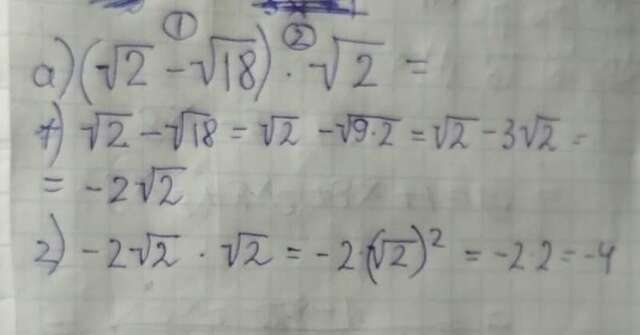 ① ②
а) (√2 - √18) · √2 =
1) √2 - √18 = √2 - √9·2 = √2 - 3√2 =
= -2√2
2) -2√2 · √2 = -2·(√2)² = -2·2 = -4